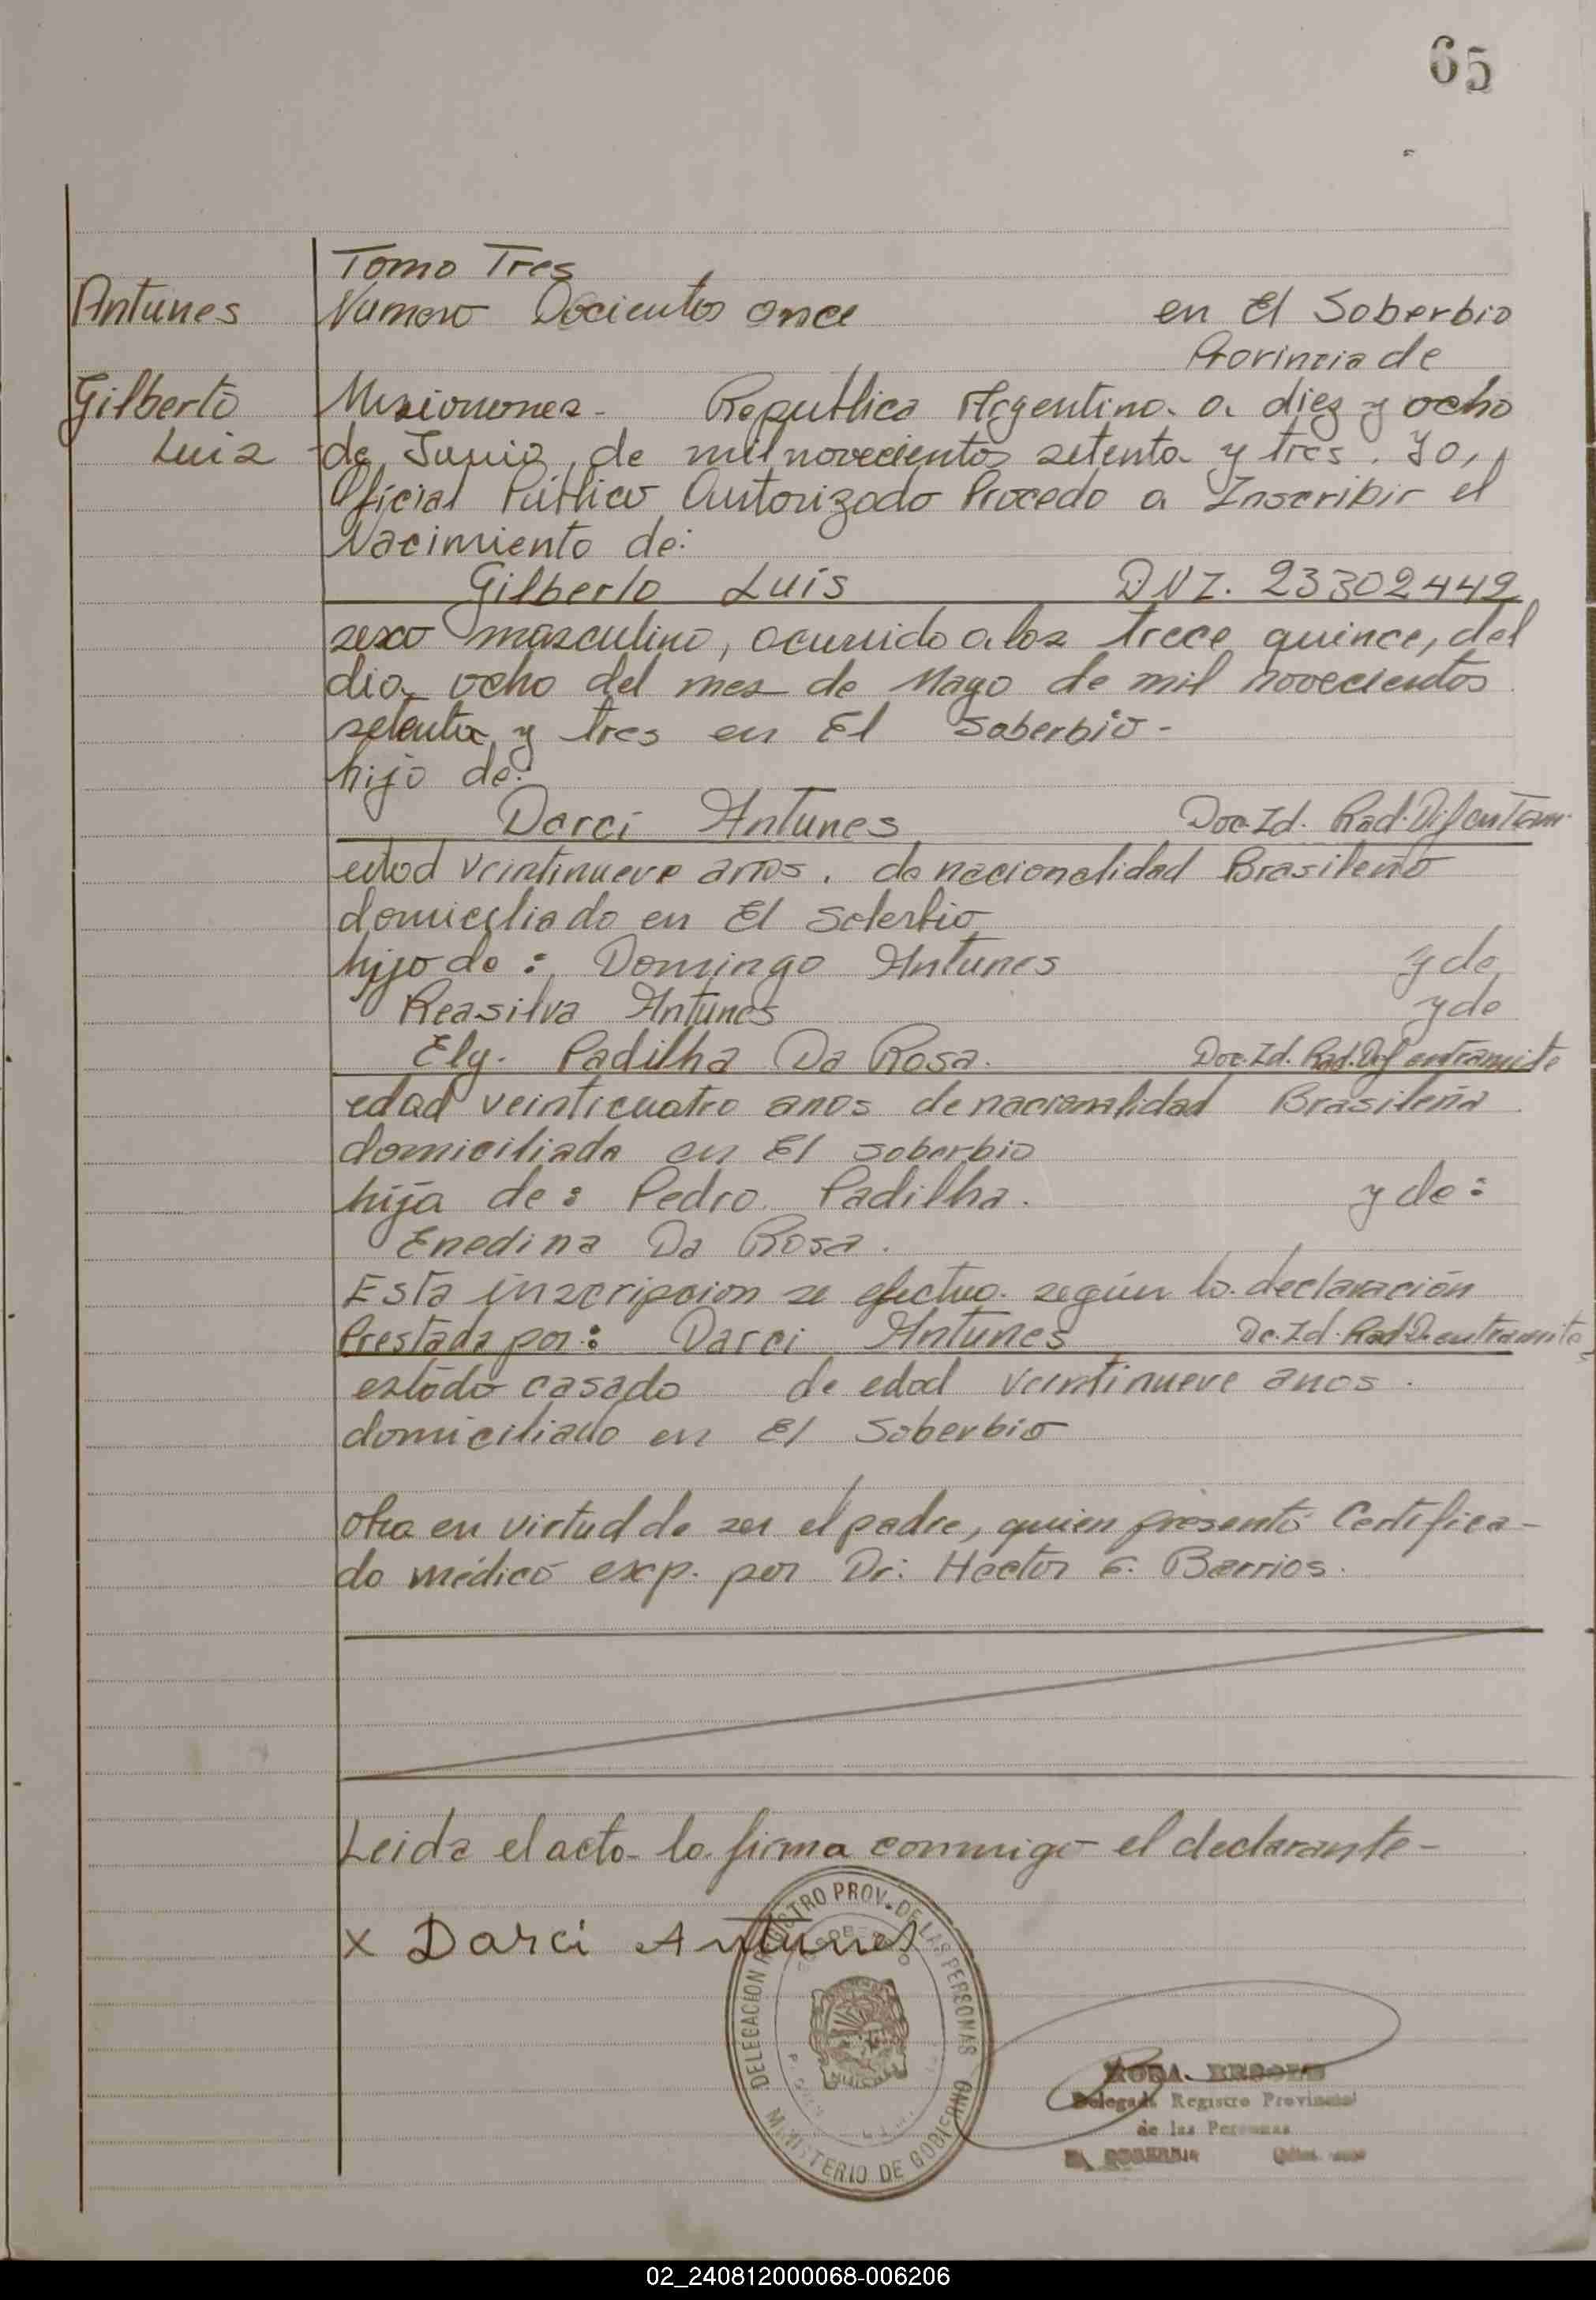 65
Tomo Tres
Antunes
Numero Docientos once en El Soberbio
Provincia de
Gilberto
Misiones - Republica Argentina a diez y ocho
Luis
de Junio, de mil novecientos setenta y tres. Yo,
Oficial Público Autorizado Procedo a Inscribir el
Nacimiento de:
Gilberto Luis D.N.I. 23302442
sexo masculino, ocurrido a las trece quince, del
dia ocho del mes de Mayo de mil novecientos
setenta y tres en El Soberbio -
hijo de:
Darci Antunes Doc. Id. Rad. Dif en Tram.
edad veintinueve anos. de nacionalidad Brasileño
domiciliado en El Soberbio
hijo de: Domingo Antunes y de
Reasilva Antunes y de
Ely. Padilha Da Rosa. Doc. Id. Rad. Def en tramite
edad veinticuatro anos de nacionalidad Brasileña
domiciliada en El Soberbio
hija de: Pedro. Padilha. y de:
Enedina Da Rosa.
Esta inscripcion se efectua según la declaración
Prestada por: Darci Antunes Dc. Id. Rad. D. en tramite
estado casado de edad veintinueve anos.
domiciliado en El Soberbio
obra en virtud de ser el padre, quien presentó Certifica-
do médico exp. por Dr: Hector E. Barrios.
Leida el acta la firma conmigo el declarante -
x Darci Antunes
DELEGACION REGISTRO PROV. DE LAS PERSONAS
EL SOBERBIO
MINISTERIO DE GOBIERNO
Delegada Registro Provincial
de las Personas
EL SOBERBIO
02_240812000068-006206